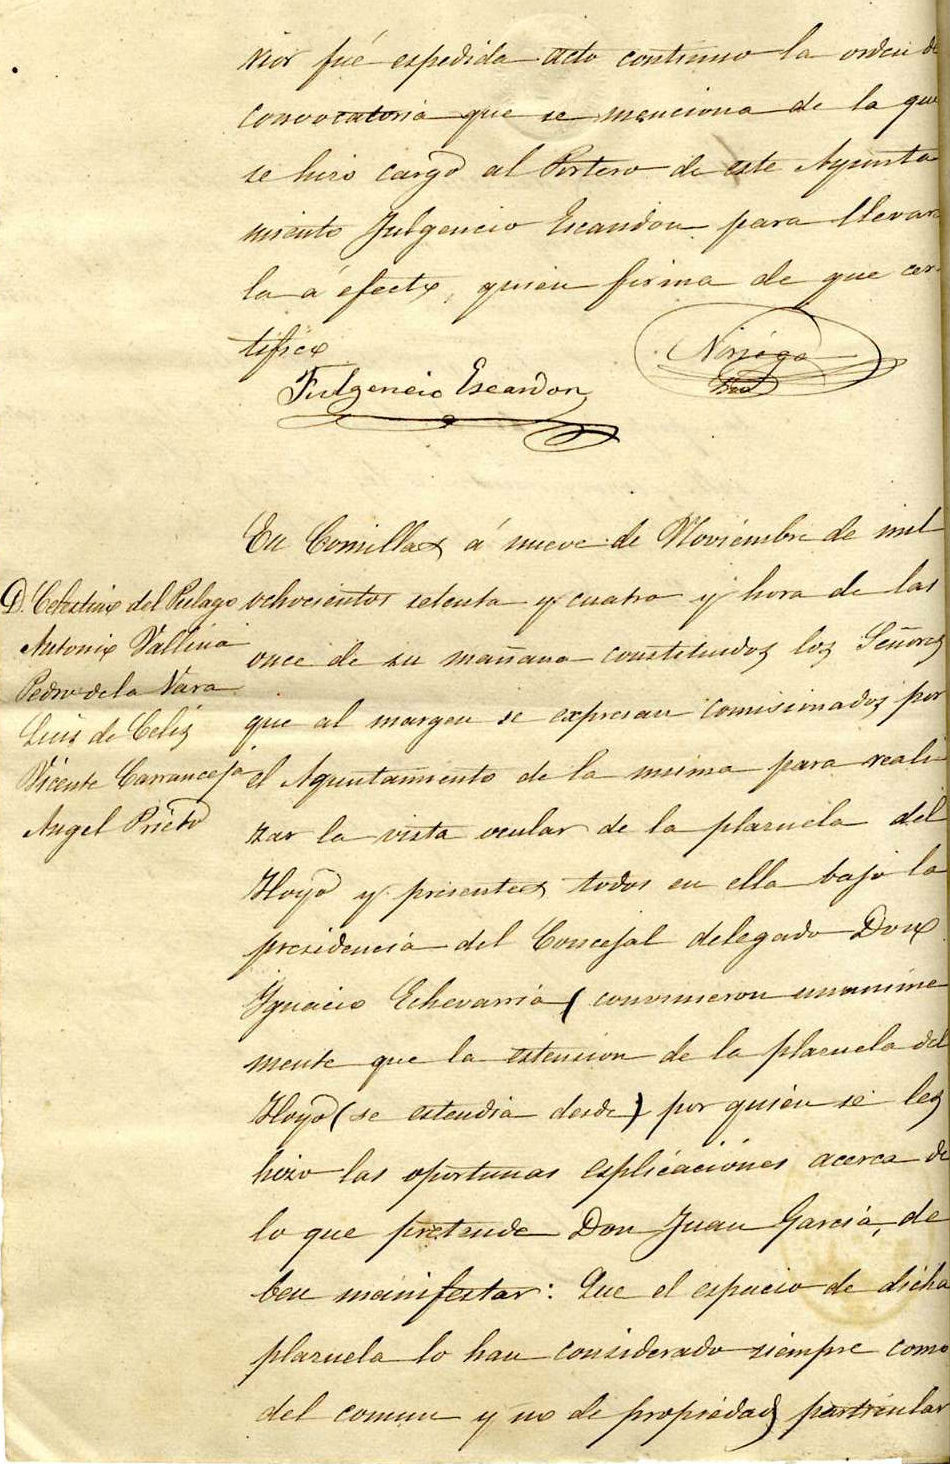 rior fué espedida acto continuo la orden de
convocatoria que se menciona de la que
se hizo cargo al Portero de este Ayunta
miento Fulgencio Escandon para llevar
la á efecto, quien firma de que cer
tifico
Noriega
Fulgencio Escandon
En Comillas á nueve de Noviembre de mil
D. Celestino del Pielago
ochocientos setenta y cuatro y hora de las
Antonio Vallina
once de su mañana constituidos los Señores
Pedro de la Vara
que al margen se expresan comisionados por
Luis de Celis
el Ayuntamiento de la misma para reali
Vicente Carranceja
zar la vista ocular de la plazuela del
Angel Prieto
Hoyo y presentes todos en ella bajo la
presidencia del Concejal delegado Don
Ygnacio Echevarria (convinieron unanime
mente que la estension de la plazuela del
Hoyo (se estendia desde) por quien se les
hizo las oportunas esplicaciónes acerca de
lo que pretende Don Juan Garcia, de
ben manifestar: Que el espacio de dicha
plazuela lo han considerado siempre como
del comun y no de propiedad particular